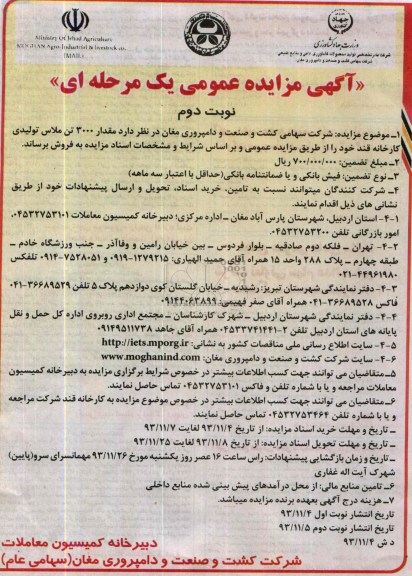 Ministry Of Jehad Agriculture
MOGHAN Agro-Industrial & livestock co.
(MAIL)
جهاد
وزارت جهاد کشاورزی
شرکت سهامی کشت و صنعت و دامپروری مغان
«آگهی مزایده عمومی یک مرحله ای»
نوبت دوم
۱-موضوع مزایده: شرکت سهامی کشت و صنعت و دامپروری مغان در نظر دارد مقدار ۳۰۰۰ تن ملاس تولیدی
کارخانه قند خود را از طریق مزایده عمومی و بر اساس شرایط و مشخصات اسناد مزایده به فروش برساند.
۲-مبلغ تضمین: ۷۰۰/۰۰۰/۰۰۰ ریال
۳-نوع تضمین: فیش بانکی و یا ضمانتنامه بانکی(حداقل با اعتبار سه ماهه)
۴- شرکت کنندگان میتوانند نسبت به تامین، خرید اسناد، تحویل و ارسال پیشنهادات خود از طریق
نشانی های ذیل اقدام نمایند.
۴-۱- استان اردبیل، شهرستان پارس آباد مغان -اداره مرکزی؛ دبیرخانه کمیسیون معاملات ۰۴۵۳۲۷۵۳۱۰۱
امور بازرگانی تلفن ۰۴۵۳۲۷۵۳۲۰۰
۴-۲- تهران - فلکه دوم صادقیه - بلوار فردوس - بین خیابان رامین و وفاآذر - جنب ورزشگاه خادم -
طبقه چهارم - پلاک ۲۸۸ واحد ۱۵ همراه آقای حمید الهیاری: ۱۲۷۹۲۱۵-۰۹۱۹ و ۷۵۲۸۰۵۱-۰۹۱۴ تلفکس
۰۲۱-۴۴۹۶۱۹۸۰
۴-۳- دفتر نمایندگی شهرستان تبریز: رشدیه - خیابان گلستان کوی دوازدهم پلاک ۵ تلفن ۳۶۶۶۸۵۲۹-۰۴۱
فاکس ۳۶۶۸۹۵۲۸-۰۴۱ همراه آقای صفر فهیمی: ۰۹۱۴۴۰۶۳۸۹۹
۴-۴- دفتر نمایندگی شهرستان اردبیل - شهرک کارشناسان - مجتمع اداری روبروی اداره کل حمل و نقل
پایانه های استان اردبیل تلفن ۲-۰۴۵۳۳۷۴۱۴۴۱ همراه آقای جاهد ۰۹۱۴۹۵۱۱۷۳۸
۴-۵- سایت اطلاع رسانی ملی مناقصات کشور به نشانی: http://iets.mporg.ir
۴-۶- سایت شرکت کشت و صنعت و دامپروری مغان: www.moghanind.com
۵-متقاضیان می توانند جهت کسب اطلاعات بیشتر در خصوص شرایط برگزاری مزایده به دبیرخانه کمیسیون
معاملات مراجعه و یا با شماره تلفن و فاکس ۰۴۵۳۲۷۵۳۱۰۱ تماس حاصل نمایند.
۶-متقاضیان می توانند جهت کسب اطلاعات بیشتر در خصوص موضوع مزایده به کارخانه قند شرکت مراجعه
و یا با شماره تلفن ۰۴۵۳۲۷۵۳۴۶۴ تماس حاصل نمایند.
- تاریخ و مهلت خرید اسناد مزایده: از تاریخ ۹۳/۱۱/۴ لغایت ۹۳/۱۱/۷
- تاریخ و مهلت تحویل اسناد مزایده: از تاریخ ۹۳/۱۱/۸ لغایت ۹۳/۱۱/۲۵
- تاریخ و زمان بازگشایی پیشنهادات: راس ساعت ۱۶ عصر روز یکشنبه مورخ ۹۳/۱۱/۲۶ مهمانسرای سرو(پایین)
شهرک آیت اله غفاری
۶-تامین منابع مالی: از محل درآمدهای پیش بینی شده منابع داخلی
۷-هزینه درج آگهی بعهده برنده مزایده میباشد.
تاریخ انتشار نوبت اول ۹۳/۱۱/۴
تاریخ انتشار نوبت دوم ۹۳/۱۱/۵
د ش ۹۳/۱۱/۴
دبیرخانه کمیسیون معاملات
شرکت کشت و صنعت و دامپروری مغان(سهامی عام)